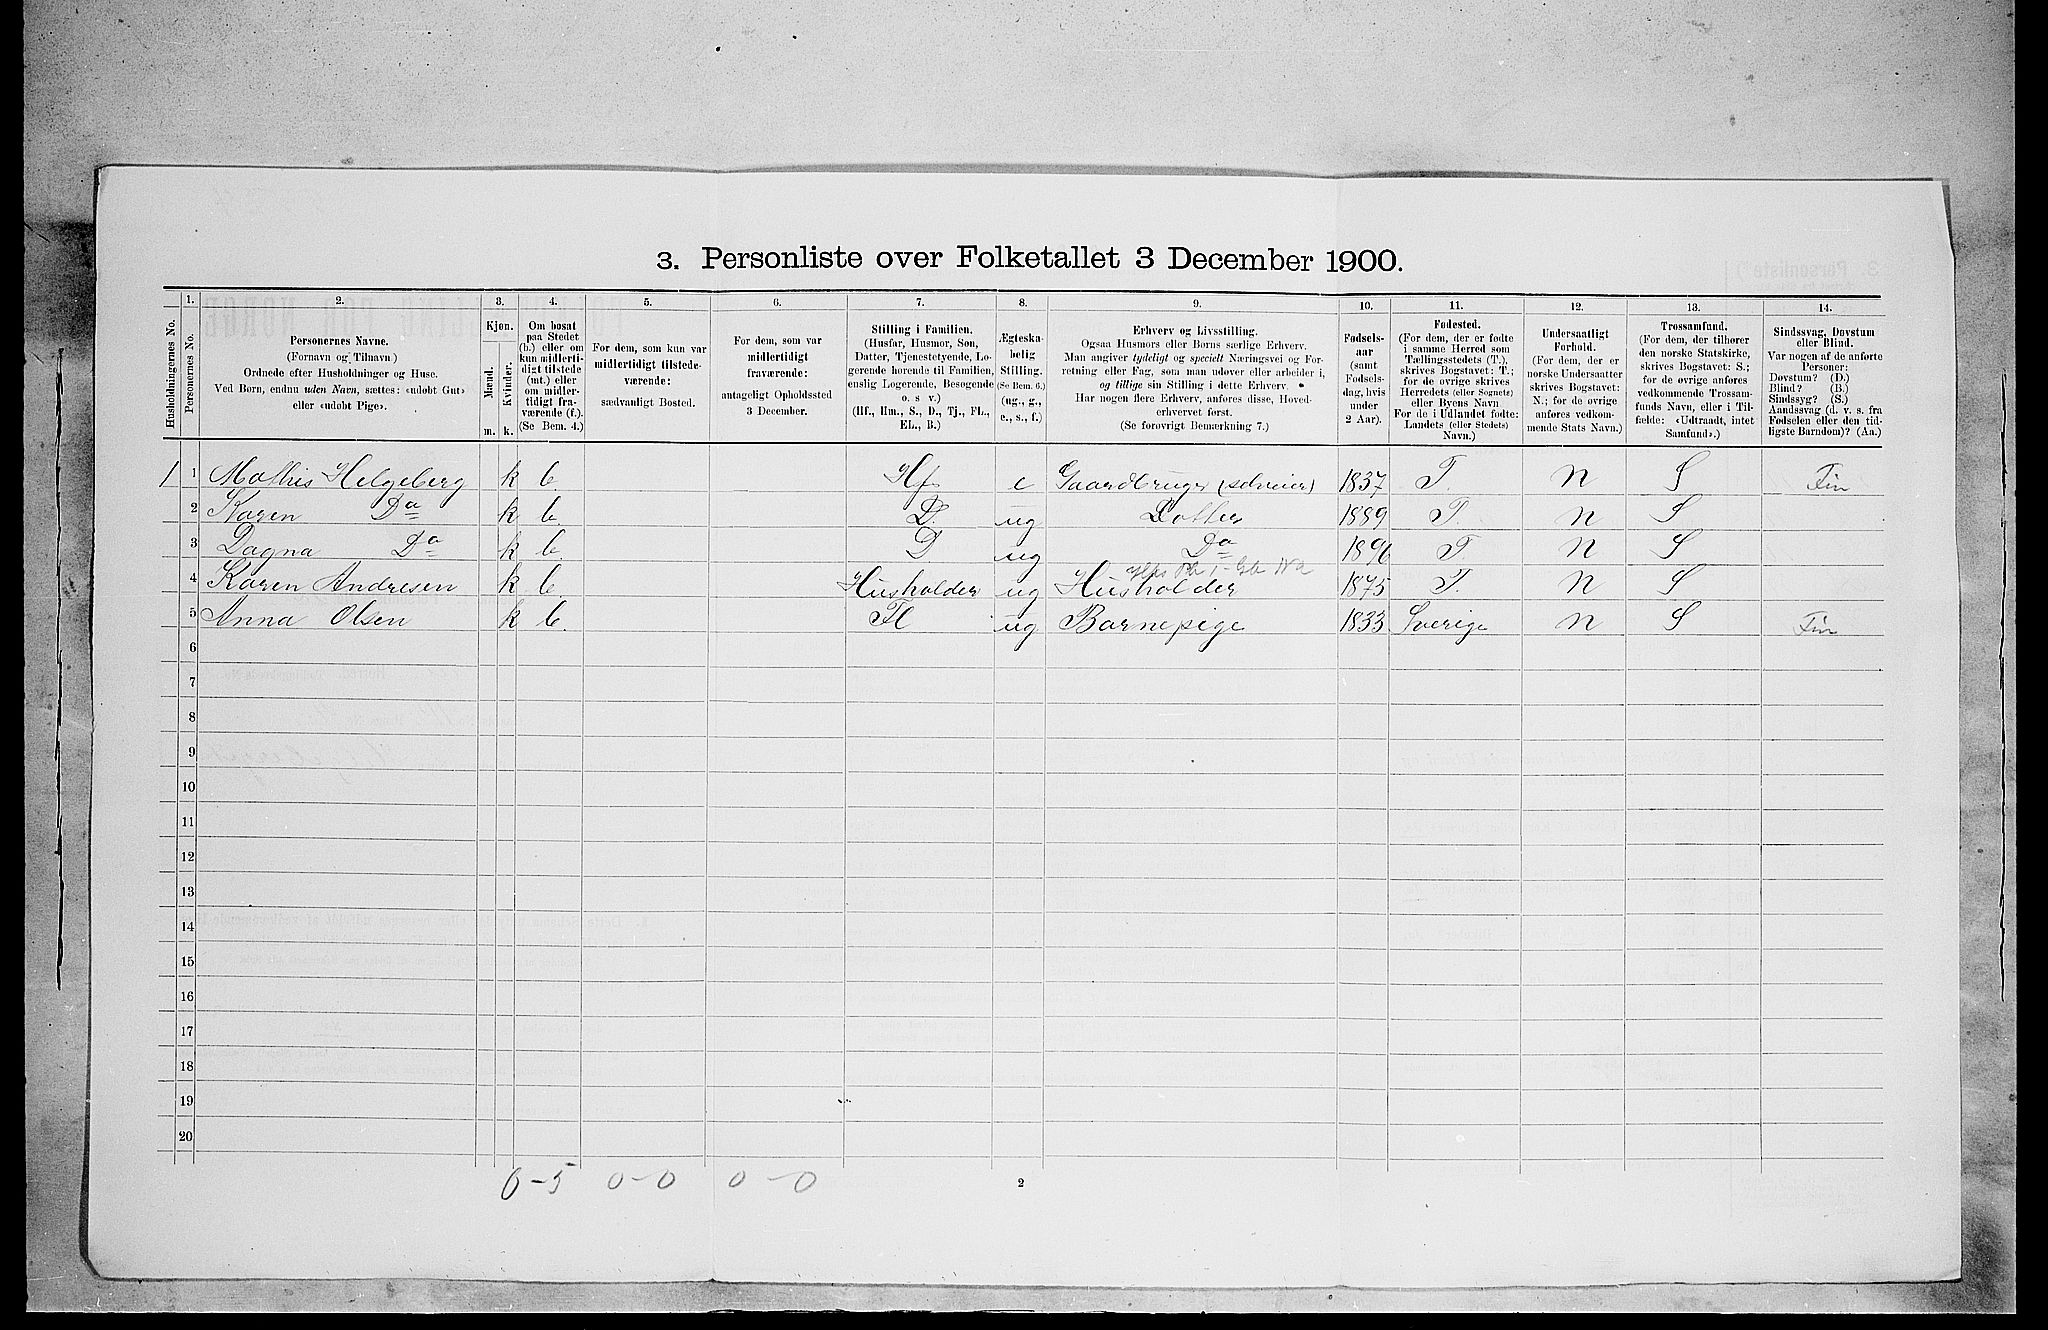 3. Personliste over Folketallet 3 December 1900.
Husholdningernes No.
1.
Personernes No.
2.
Personernes Navne.
(Fornavn og Tilnavn)
Ordnede efter Husholdninger og Huse.
Ved Børn, endnu uden Navn, sættes: «udøbt Gut»
eller «udøbt Pige».
3.
Kjøn.
Mænd.
Kvinder.
m. k.
4.
Om bosat
paa Stedet
(b.) eller om
kun midlerti-
digt tilstede
(mt.) eller
om midler-
tidigt fra-
værende (f.).
(Se Bem. 4.)
5.
For dem, som kun var
midlertidigt tilstede-
værende:
sædvanligt Bosted.
6.
For dem, som var
midlertidigt
fraværende:
antageligt Opholdssted
3 December.
7.
Stilling i Familien.
(Husfar, Husmor, Søn,
Datter, Tjenestetyende, Lo-
gerende hørende til Familien,
enslig Logerende, Besøgende
o. s v.)
(Hf., Hm., S., D., Tj., FL.,
EL., B.)
8.
Ægteska-
belig
Stilling.
(Se Bem. 6.)
(ug., g.,
e., s., f.)
9.
Erhverv og Livsstilling.
Ogsaa Husmors eller Børns særlige Erhverv.
Man angiver tydeligt og specielt Næringsvei og For-
retning eller Fag, som man udøver eller arbeider i,
og tillige sin Stilling i dette Erhverv.
Har nogen flere Erhverv, anføres disse, Hoved-
erhvervet først.
(Se forøvrigt Bemærkning 7.)
10.
Fødsels-
aar
(samt
Fødsels-
dag, hvis
under
2 Aar).
11.
Fødested.
(For dem, der er fødte
i samme Herred som
Tællingsstedets (T.),
skrives Bogstavet: T.;
for de øvrige skrives
Herredets (eller Sognets)
eller Byens Navn.
For de i Udlandet fødte:
Landets (eller Stedets)
Navn.)
12.
Undersaatligt
Forhold.
(For dem, der er
norske Undersaatter
skrives Bogstavet:
N.; for de øvrige
anføres vedkom-
mende Stats Navn.)
13.
Trossamfund.
(For dem, der tilhører
den norske Statskirke,
skrives Bogstavet: S.;
for de øvrige anføres
vedkommende Trossam-
funds Navn, eller i Til-
fælde: «Udtraadt, intet
Samfund».)
14.
Sindssvag, Døvstum
eller Blind.
Var nogen af de anførte
Personer:
Døvstum? (D.)
Blind? (B.)
Sindssyg? (S.)
Aandssvag (d. v. s. fra
Fødselen eller den tid-
ligste Barndom)? (Aa.)
1 1 Mathis Helgeberg k b Hf e Gaardbruger (selveier) 1837 T. N S
2 Karen Da k b D. ug Datter 1889 T. N S
3 Dagna Da k b. D ug Da 1896 T N S
4 Karen Andresen k b Husholder ug Husholder 1875 T. N S
5 Anna Olsen k b. Fl ug Barnepige 1833 Sverige N S
6
7
8
9
10
11
12
13
14
15
16
17
18
19
20
0-5 0-0 0-0
2